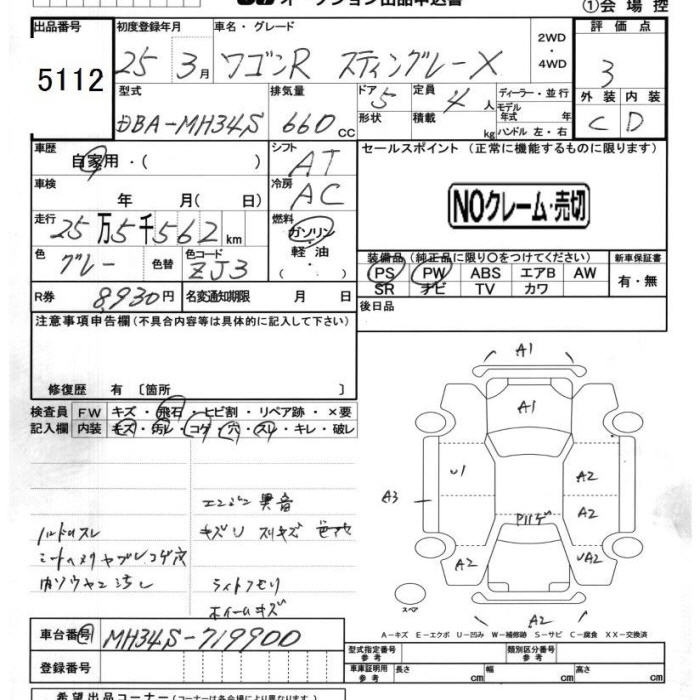 オークション出品申込書
①会場控
出品番号 5112
初度登録年月 25年 3月
車名・グレード ワゴンR スティングレーX
2WD・4WD
評価点 3
外装 C 内装 D
型式 DBA-MH34S
排気量 660 cc
ドア 5 形状
定員 4人 積載 kg
ディーラー・並行
モデル年式 年
ハンドル 左・右
車歴 自家用・( )
シフト AT
車検 年 月( 日)
冷房 AC
走行 25万5千562km
燃料 ガソリン・軽油・( )
色 グレー 色替 色コード ZJ3
R券 8,930円 名変通知期限 月 日
セールスポイント (正常に機能するものに限ります)
NOクレーム・売切
装備品(純正品に限り○をつけてください) 新車保証書
PS PW ABS エアB AW 有・無
SR ナビ TV カワ
後日品
注意事項申告欄(不具合内容等は具体的に記入して下さい)
修復歴 有〔箇所 〕
検査員記入欄
FW キズ・飛石・ヒビ割・リペア跡・×要
内装 キズ・汚レ・コゲ・穴・スレ・キレ・破レ
エンジン異音
ハンドルスレ キズU スリキズ 色アセ
シートヘタリヤブレコゲ穴
内ソウヤニ汚レ ライトクモリ
ホイールキズ
A1
A1
U1
A2
A3
A2
Pハゲ
A2
UA2
A2
スペア
A-キズ E-エクボ U-凹み W-補修跡 S-サビ C-腐食 XX-交換済
車台番号 MH34S-719900
登録番号
型式指定番号 参考 類別区分番号 参考
車庫証明用 参考 長さ cm 幅 cm 高さ cm
希望出品コーナー(コーナーは各会場により異なります)